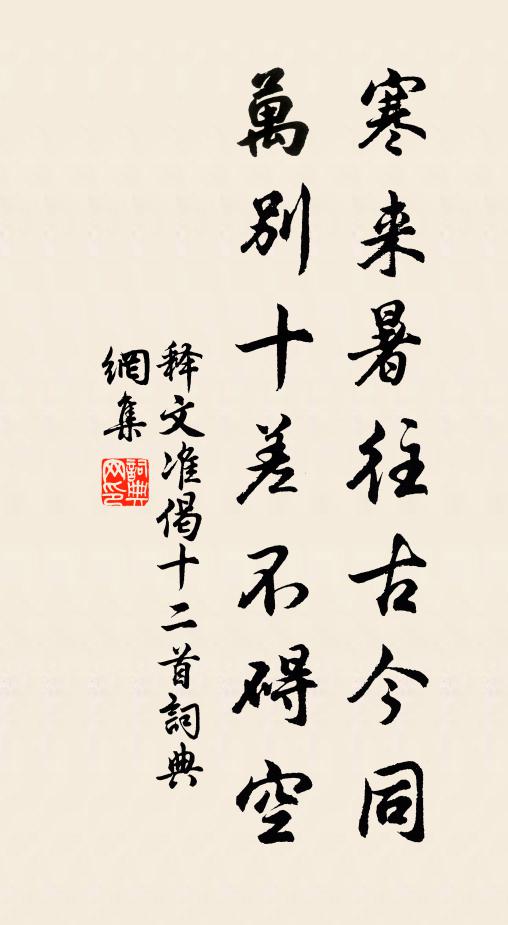 寒来暑往古今同
萬别十差不碍空
释文准偈十二首詞典
網集
詞典
网印